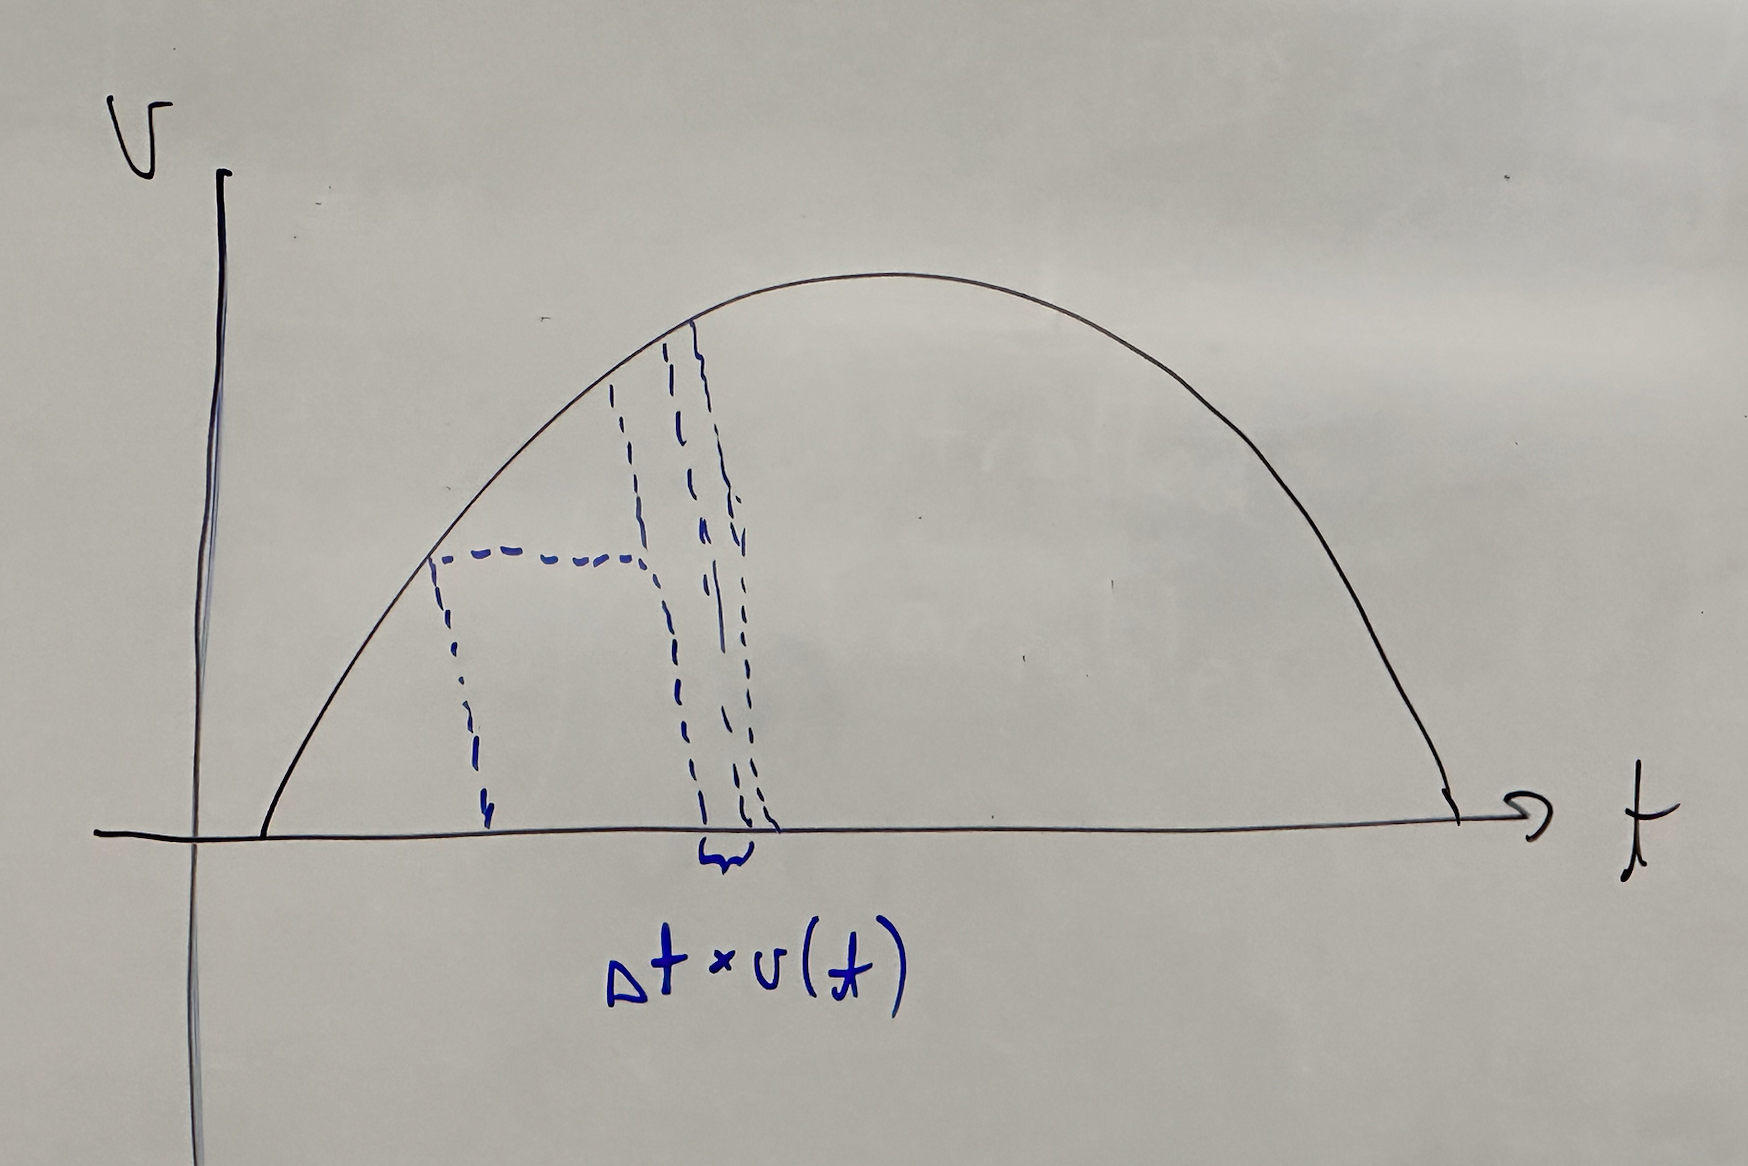 v
t
Δt × v(t)